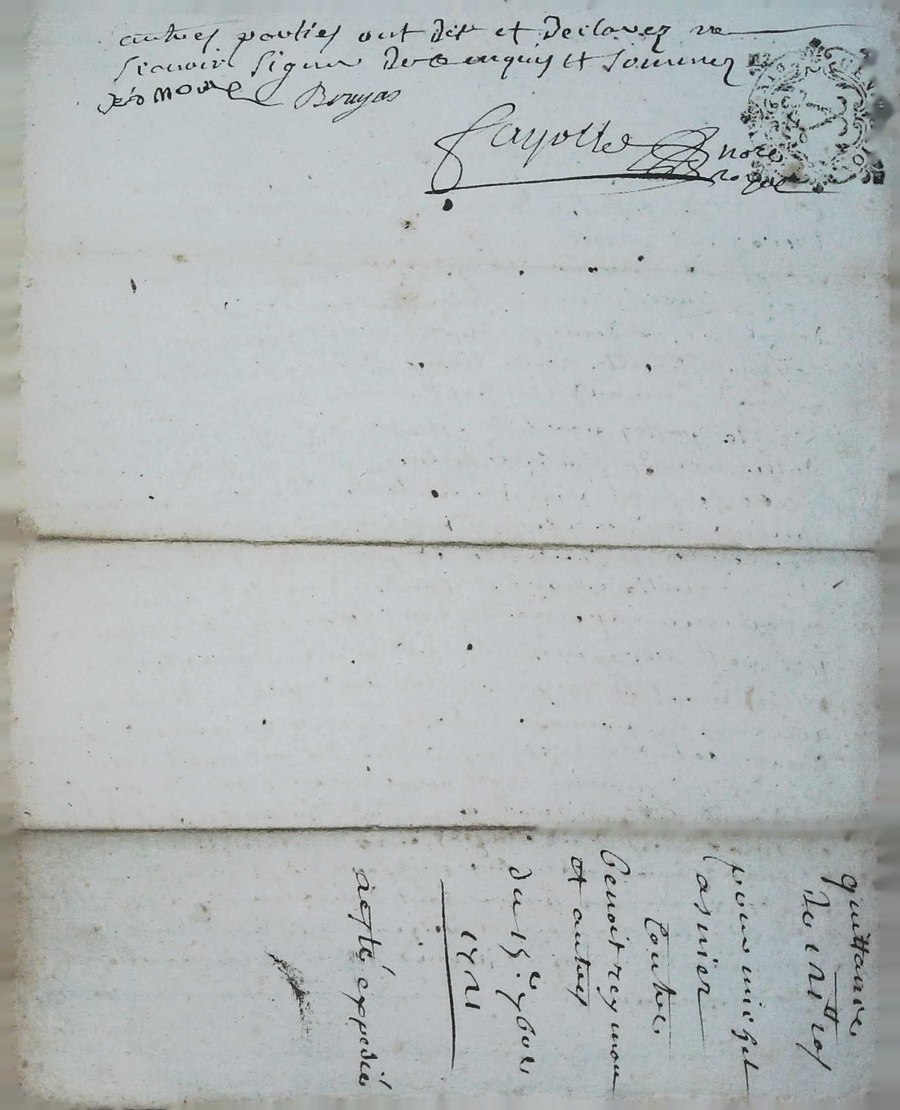 autres parties ont dit et declarez ne
scavoir signer de ce enquis et sommez
Bruyas
Fayolle nore
royal
quittance
de
pour michel
lasnier
Contre
benoit reymon
et autres
du 15.e 7bre
1721
a esté expedié